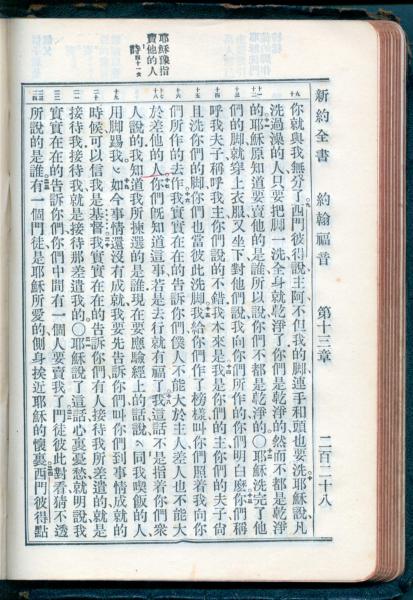 新約全書 約翰福音 第十三章 二百二十八
耶穌豫指
賣他的人
詩四十一
你就與我無分了西門彼得說主阿不但我的脚連手和頭也要洗耶穌說凡
洗過澡的人只要把脚一洗全身就乾淨了你們是乾淨的然而不都是乾淨
的耶穌原知道要賣他的是誰所以說你們不都是乾淨的〇耶穌洗完了他
們的脚就穿上衣服又坐下對他們說我向你們所作的你們明白麽你們稱
呼我夫子稱呼我主你們說的不錯我本來是我是你們的主你們的夫子尙
且洗你們的脚你們也當彼此洗脚我給你們作了榜樣叫你們照着我向你
們所作的去作我實實在在的告訴你們僕人不能大於主人差人也不能大
於差他的人你們旣知道這事若是去行就有福了我這話不是指着你們衆
人說的我知道我所揀選的是誰現在要應驗經上的話說同我喫飯的人
用脚踢我如今事情還沒有成就我要先告訴你們叫你們到事情成就的
時候可以信我是基督我實實在在的告訴你們有人接待我所差遣的就是
接待我接待我就是接待那差遣我的〇耶穌說了這話心裏憂愁就明說我
實實在在的告訴你們你們中間有一個人要賣我了門徒彼此對看猜不透
所說的是誰有一個門徒是耶穌所愛的側身挨近耶穌的懷裏西門彼得點